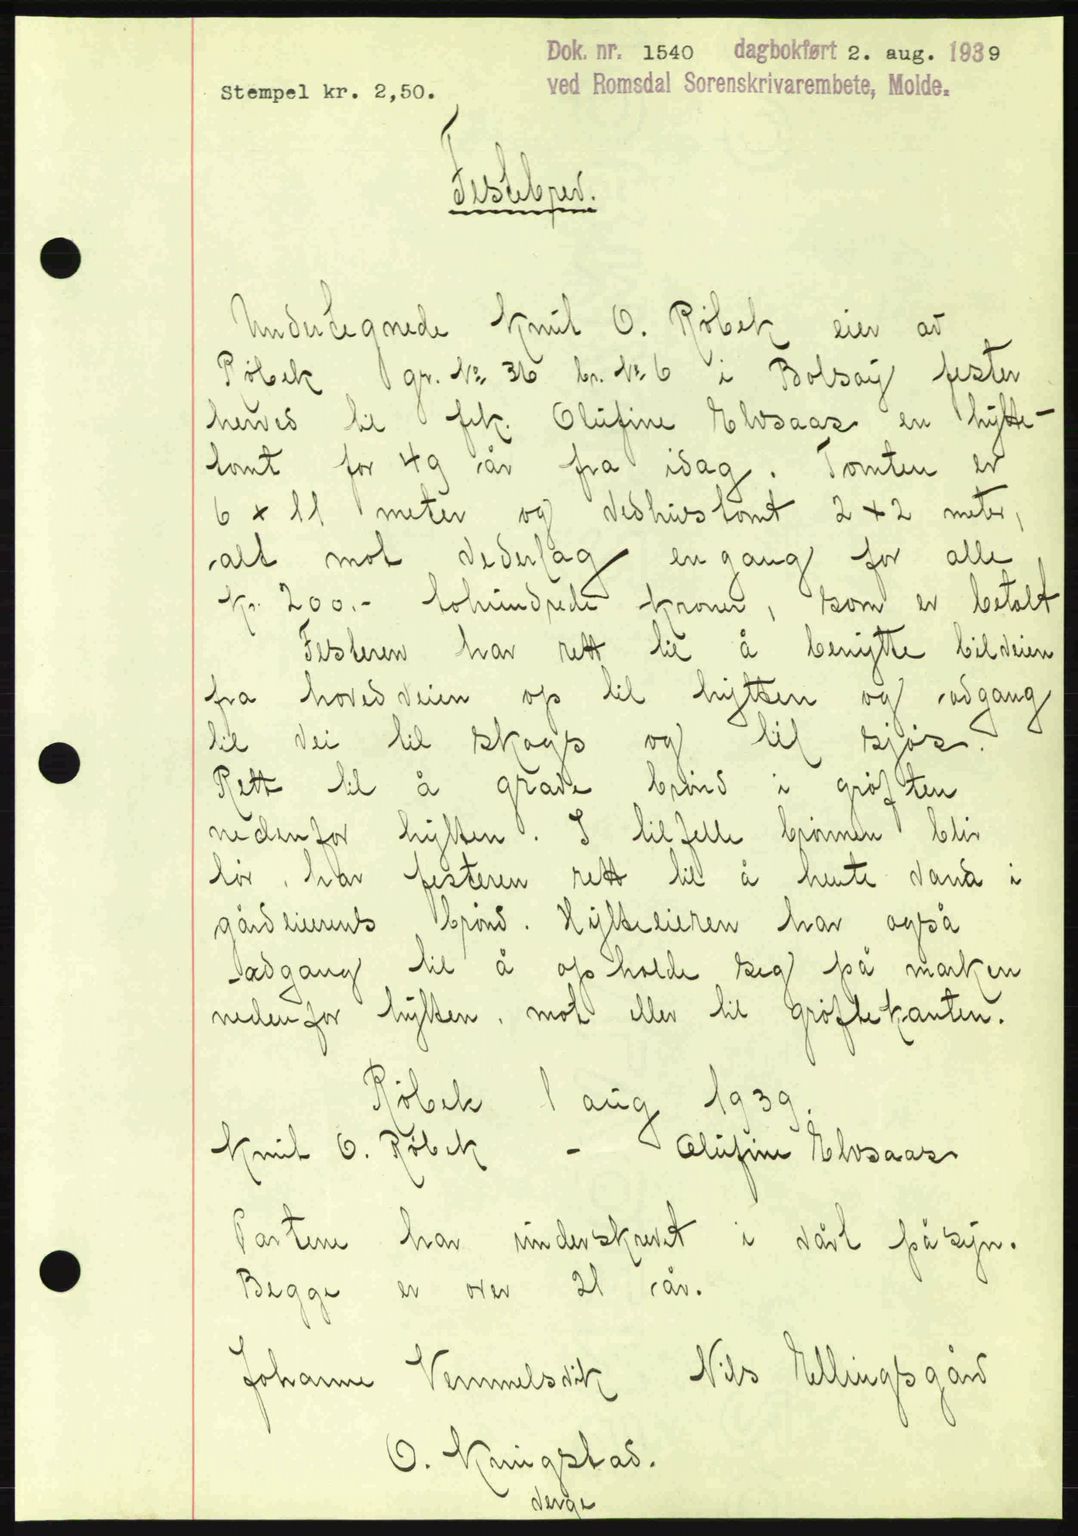 Dok. nr. 1540 dagbokført 2. aug. 1939
ved Romsdal Sorenskrivarembete, Molde.
Stempel kr. 2,50.
Festebrev.
Undertegnede Knut O. Røbek eier av
Røbek gr. No. 36 br. No. 6 i Bolsøy fester
herved til frk. Olufine Elvsaas en hytte-
tomt for 49 år fra idag. Tomten er
6 x 11 meter og vedhustomt 2 x 2 meter,
alt mot vederlag en gang for alle
kr. 200.- tohundrede kroner, som er betalt
Festeren har rett til å benytte bilveien
fra hovedveien op til hytten og adgang
til vei til skogs og til sjøs.
Rett til å grave brønd i grøften
nedenfor hytten. I tilfelle brønnen blir
tør, har festeren rett til å hente vand i
gårdeierens brønd. Hytteeieren har også
adgang til å opholde seg på marken
nedenfor hytten, mot eller til grøftekanten.
Røbek 1 aug 1939.
Knut O. Røbek - Olufine Elvsaas
Partene har underskrevet i vårt påsyn.
Begge er over 21 år.
Johanne Vemmelsvik Nils Ellingsgård
O. Kringstad.
verge